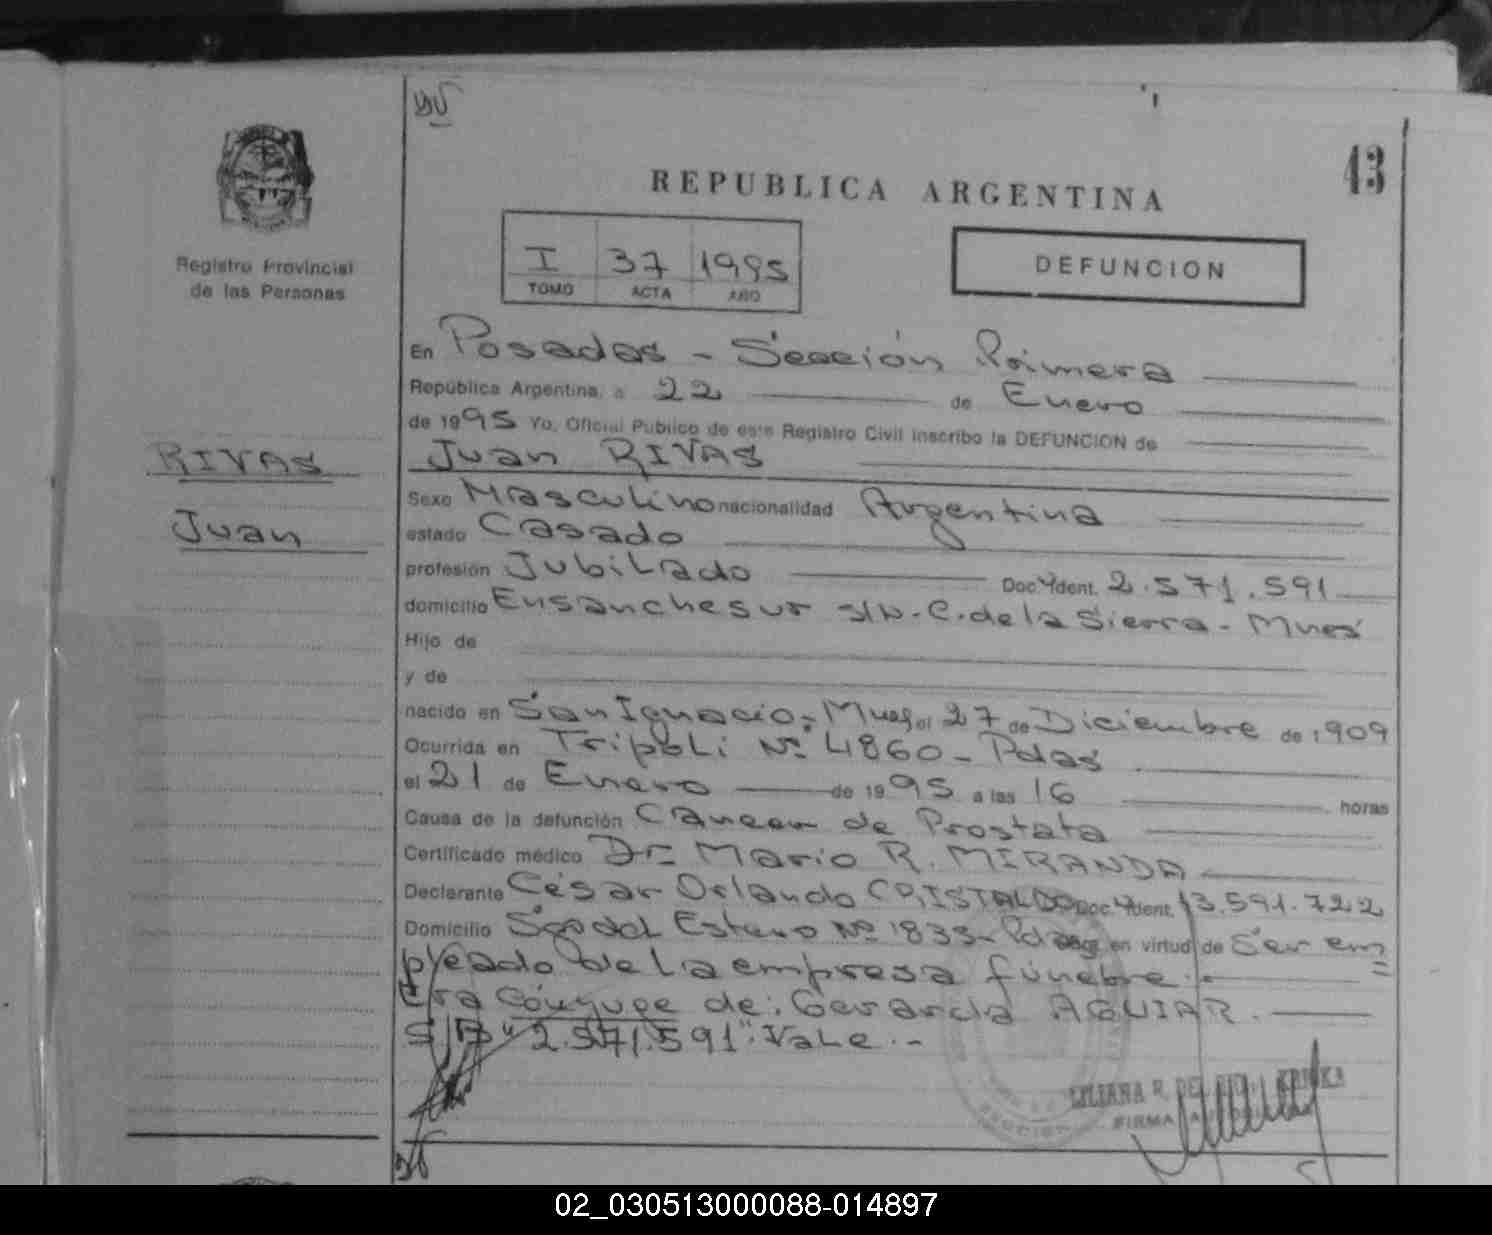 43
REPUBLICA ARGENTINA
Registro Provincial
de las Personas
I 37 1995
TOMO ACTA AÑO
DEFUNCION
En Posadas - Sección Primera
República Argentina, a 22 de Enero
de 1995 Yo, Oficial Público de este Registro Civil inscribo la DEFUNCION de
RIVAS
Juan RIVAS
Juan
Sexo Masculino nacionalidad Argentina
estado Casado
profesión Jubilado Doc. Ydent. 2.571.591
domicilio Ensanche sur s/N. C. de la Sierra - Mnes
Hijo de
y de
nacido en San Ignacio, Mnes el 27 de Diciembre de 1909
Ocurrida en Tripoli Nº 4860 - Pdas
el 21 de Enero de 1995 a las 16 horas
Causa de la defunción Cancer de Prostata
Certificado médico Dr. Mario R. MIRANDA
Declarante César Orlando CRISTALDO Doc. Ydent. 13.591.722
Domicilio Sgo del Estero Nº 1833 - Pdas en virtud de Ser em=
pleado de la empresa fúnebre.-
Era cónyuge de: Gerarda AGUIAR.
S/B "2.571.591": Vale.-
LILIANA R. DE
FIRMA
02_030513000088-014897